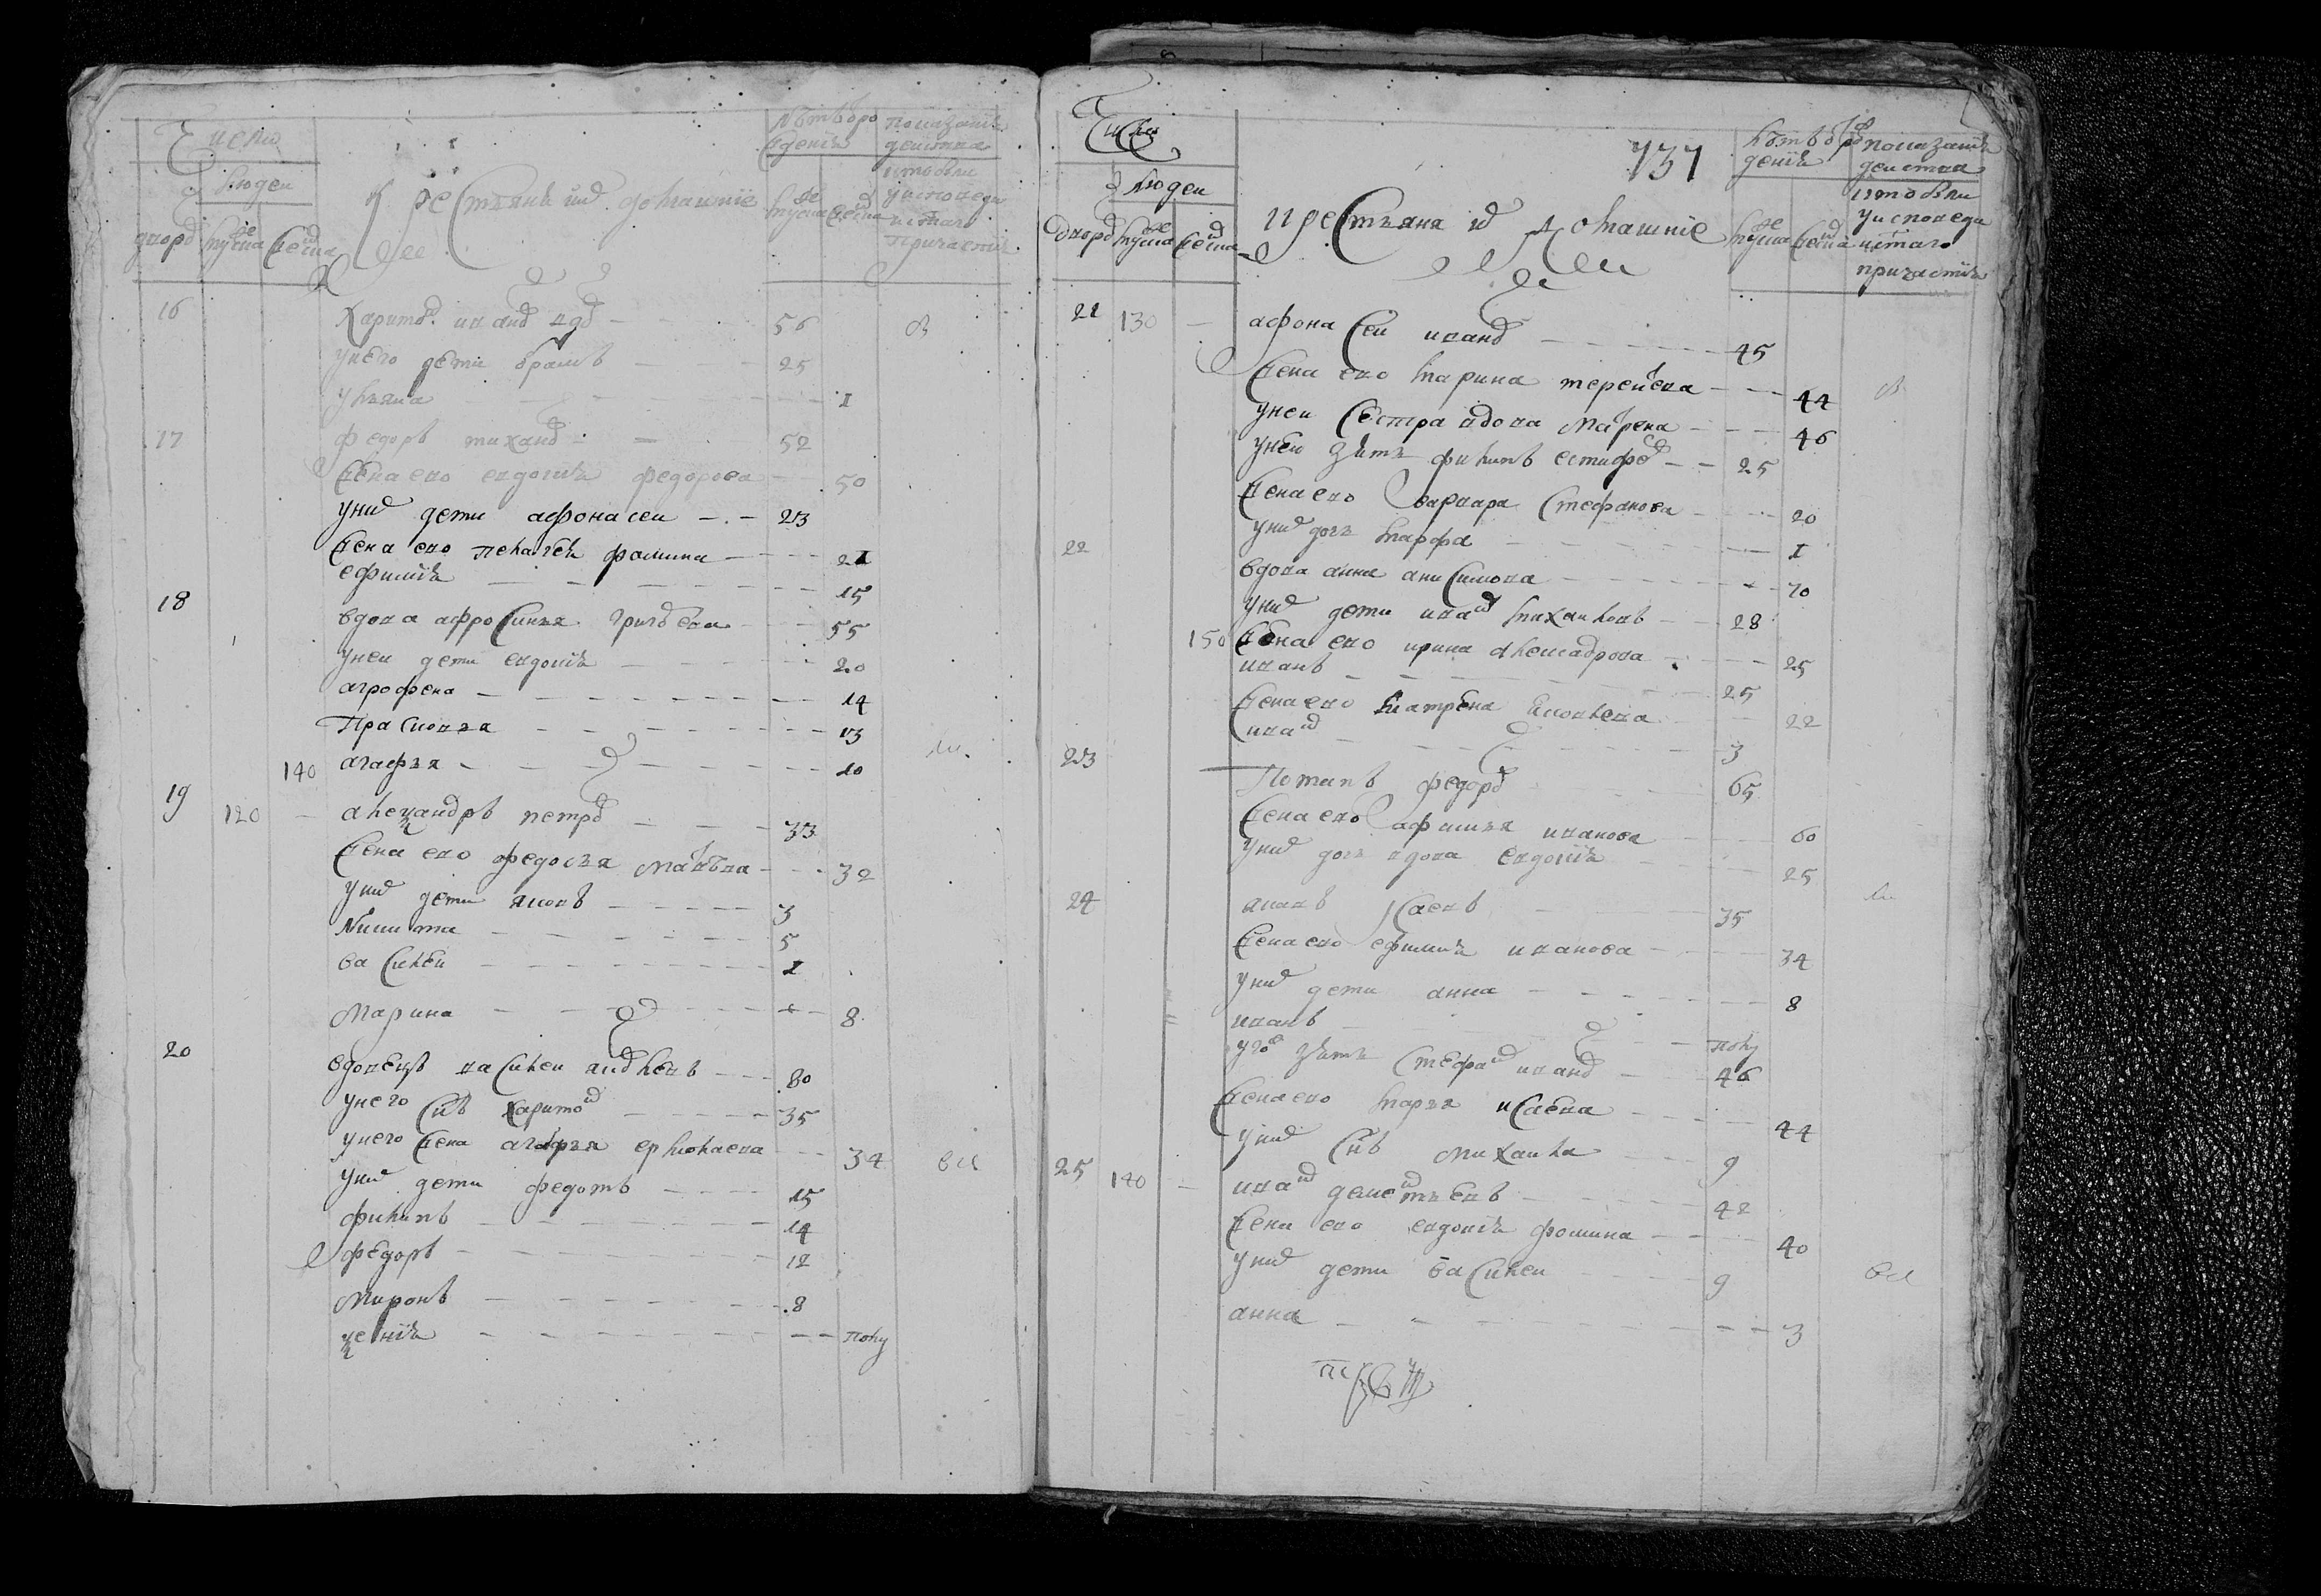 Число
людеи
дворо муска женска
крестьяня и их домашние
лѣтъ от рождения
муска женска
показание действа кто были у исповеди и св таго причастия
16 Харито иванов вдов 56
у него дети ѳрашъ 25
ульяна 1
17 федоръ михаило 52
жена ево евдокия федорова 50
у них дети афонасеи 23
жена ево пелагея фомина 21
ефимия 15
18 вдова афросинья григорьева 55
у неи дети евдокия 20
агрофена 14
Прасковья 13
140 агафья 10
19 120 алеѯандръ петров 33
жена ево федосья маркова 32
у них дети яковъ 3
Никита 5
василеи 1
марина 8
20 вдовецъ василеи яковлевъ 80
у него снъ харитон 35
у него жена агафья ермолаева 34
у них дети федотъ 15
филипъ 14
федоръ 12
миронъ 8
ѯения полу
737
Число
людеи
дворо муска женска
крестьяня и домашние
лѣтъ от рождения
муска женска
показание действа кто были у исповеди и св таго причастия
21 130 афонасеи иванов 45
жена ево марина терентева 44
у неи сестра вдова марфена 46
у неи зять филипъ естифеев 25
жена ево варвара стефанова 20
у них дочь марфа 1
22 вдова анна анисимова 70
у них дети иван михаиловъ 28
150 жена ево ирина алеѯадрова 25
иванъ 25
жена ево матрена яковлева 22
иван 3
23 Потапъ федоров 65
жена ево афимья иванова 60
у них дочь вдова евдокия 25
24 иванъ исаевъ 35
жена ево ефимия иванова 34
у них дети анна 8
иванъ полу
у го зять стефан иванов 46
жена ево марья исаева 44
у них снъ михаила 9
25 140 иван дементьевъ 42
жена ево евдокия фомина 40
у них дети василеи 9
анна 3